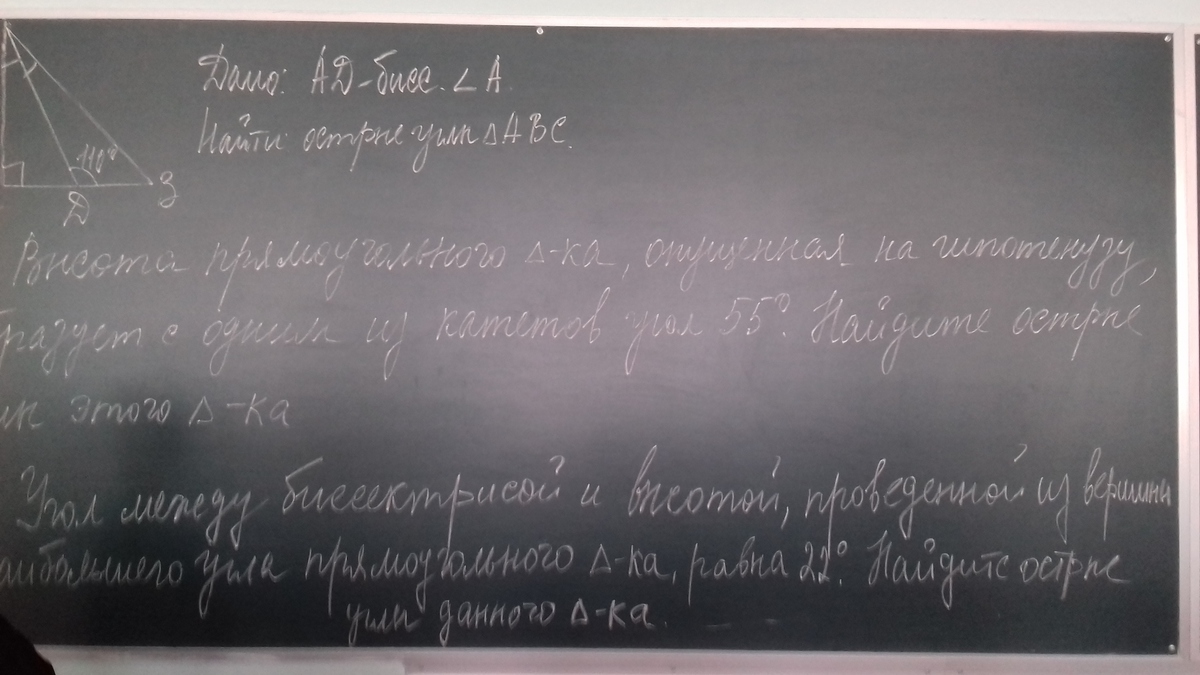 Дано: AD-бисс. ∠A.
Найти: острые углы ΔABC.
110°
B
D
Высота прямоугольного Δ-ка, опущенная на гипотенузу,
разует с одним из катетов угол 55°. Найдите острые
лы этого Δ-ка
Угол между биссектрисой и высотой, проведенной из вершины
аибольшего угла прямоугольного Δ-ка, равна 22°. Найдите острые
углы данного Δ-ка.